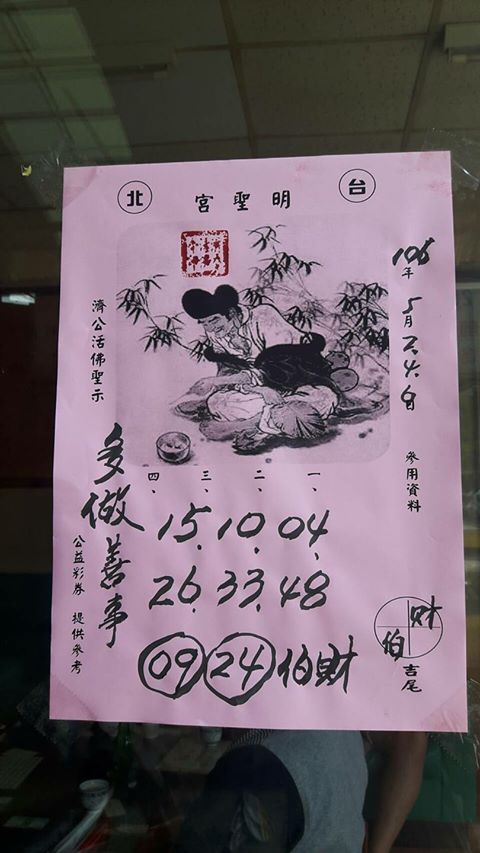 台北
明聖宮
106年5月2.4.日
參用資料
財
伯
吉尾
一、二、三、四、
15.10.04
26.33.48
09 24 伯財
濟公活佛聖示
多做善事
公益彩券 提供參考